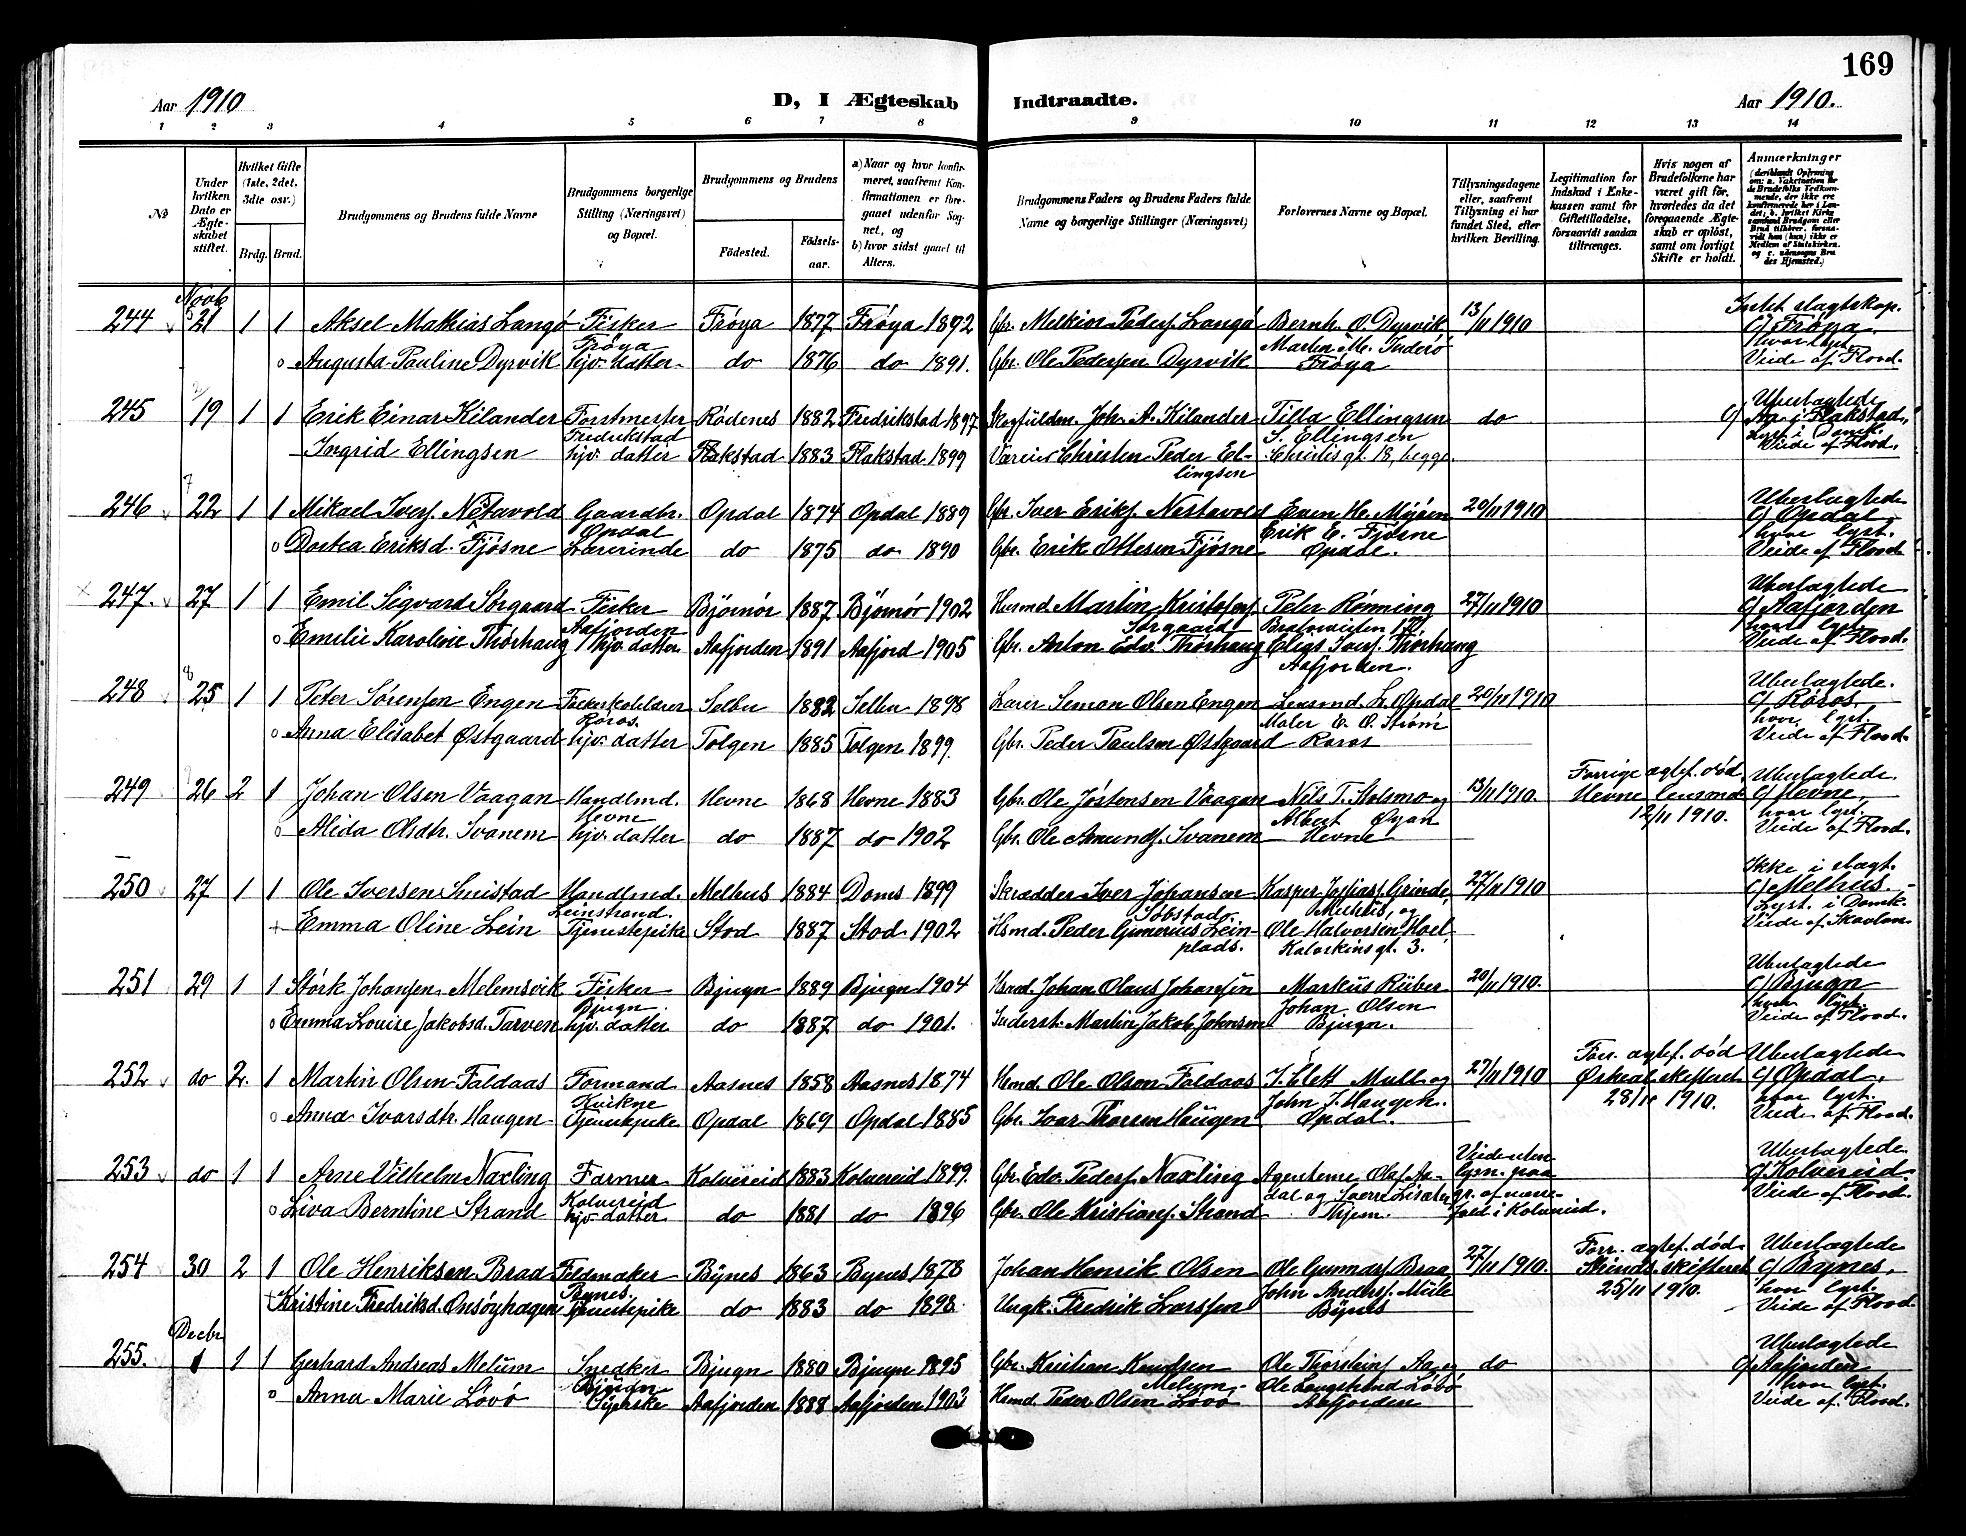 169
Aar 1910 D, I Ægteskab Indtraadte. Aar 1910.
1 2 3 4 5 6 7 8 9 10 11 12 13 14
No
Under hvilken Dato er Ægteskabet stiftet.
Hvilket Gifte (1ste, 2det, 3die osv.)
Brdg. Brud.
Brudgommens og Brudens fulde Navne
Brudgommens borgerlige Stilling (Næringsvei) og Bopæl.
Brudgommens og Brudens
Födested. Födsels-aar.
a) Naar og hvor konfirmeret, saafremt Konfirmationen er foregaaet udenfor Sognet, og
b) hvor sidst gaaet til Alters.
Brudgommens Faders og Brudens Faders fulde Navne og borgerlige Stillinger (Næringsvei)
Forlovernes Navne og Bopæl.
Tillysningsdagene eller, saafremt Tillysning ei har fundet Sted, efter hvilken Bevilling.
Legitimation for Indskud i Enkekassen samt for Giftetilladelse, forsaavidt saadan tiltrænges.
Hvis nogen af Brudefolkene har været gift för, hvorledes da det foregaaende Ægteskab er oplöst, samt om lovligt Skifte er holdt.
Anmærkninger
Novb
244 21 1 1 Aksel Mathias Langø Fisker Frøya 1877 Frøya 1892 Gbr. Melkior Peders. Langø Bernh. O. Dyrvik 13/11 1910 Intet slagtskap.
Frøya Martin M. Inderø G/ Frøya
Augusta Pauline Dyrvik hjv. datter do 1876 do 1891. Gbr. Ole Pedersen Dyrvik Frøya hvor lyst. Viede af Flood.
245 19 1 1 Erik Einar Kilander Forstmester Rödenes 1882 Fredrikstad 1897 Skogfuldm. Joh. A. Kilander Tilla Ellingsen do Uberlagtede
Fredrikstad S. Ellingsen G/ Flakstad,
Ingrid Ellingsen hjv. datter Flakstad 1883 Flakstad 1899 Christen Peder Ellingsen gt. 18, begge. Lyst i Domk. Viede af Flood.
246 22 1 1 Mikael Ivers. Nestavold Gaardbr. Opdal 1874 Opdal 1889 Gbr. Iver Eriks. Nestavold Even H. Mjøen 20/11 1910 Uberlagtede
Opdal Erik E. Fjøsne G/ Opdal
Dortea Eriksd. Fjøsne Lærerinde do 1875 do 1890 Gbr. Erik Ottesen Fjøsne Opdal. hvor lyst. Viede af Flood
247. 27 1 1 Emil Sigvard Sørgaard Fisker Bjørnør 1887 Bjørnør 1902 Husmd. Martin Kristofers. Sørgaard Peter Rønning 27/11 1910 Uberlagtede
Aafjorden G/ Aafjorden
Emilie Karoline Thørhaug hjv. datter Aafjorden 1891 Aafjord 1905 Gbr. Anton Edv. Thørhaug Elias Ivers. Thørhaug Aafjorden. hvor lyst. Viede af Flood.
248 25 1 1 Peter Sørensen Engen Selbu 1882 Selbu 1898 Lærer Seman Olsen Engen Lensmd. L. Opdal 20/11 1910 Uberlagtede.
Røros. Maler E. O. Strøm G/ Røros
Anna Elisabet Østgaard hjv. datter Tolgen 1885 Tolgen 1899. Gbr. Peder Paulsen Østgaard Røros hvor lyst. Viede af Flood.
249 26 2 1 Johan Olsen Vaagan Handlmd. Hevne 1868 Hevne 1883 Gbr. Ole Jøstensen Vaagan Nils T. Holsmo og 13/11 1910. Forrige ægtef. død, Hevne lensmd 12/11 1910. Uberlagtede.
Hevne Albert Øyan G/ Hevne,
Alida Olsdtr. Svanem hjv. datter do 1887 do 1902 Gbr. Ole Amunds. Svanem Hevne hvor lyst. Viede af Flood.
250 27 1 1 Ole Iversen Smistad Handlmd. Melhus 1884 Doms 1899 Skrædder Iver Johansen Søbstad. Kasper Grinde, Melhus, og 27/11 1910 Ikke i slagt.
Leinstrand. G/ Melhus.
Emma Oline Lein Tjenestepike Stod 1887 Stod 1902 Hsmd. Peder Gunerius Leinplads. Ole Halvorsen Hoel, Kalvskinsgt. 3. Lyst. i Domk. Viede af Skavlan.
251 29 1 1 Størk Johansen Melemsvik Fisker Bjugn 1889 Bjugn 1904 Hsmd. Johan Olaus Johansen Markus Rüber 20/11 1910. Uberlagtede
Bjugn Johan Olsen G/ Bjugn
Emma Lovise Jakobsd. Tarven hjv. datter do 1887 do 1901. Inderst. Martin Jakob Johnsen Bjugn. hvor lyst. Viede af Flood.
252 do 2. 1 Martin Olsen Faldaas Formand Aasnes 1858 Aasnes 1874 Hsmd. Ole Olsen Faldaas J. Elett Mull og 27/11 1910 Forr. ægtef. død skifteret 28/11 1910. Uberlagtede
Kvikne John I. Haugen. G/ Opdal,
Anna Ivarsdtr. Haugen Tjenestpike Opdal 1869 Opdal 1885 Gbr. Ivar Thoresen Haugen Opdal. hvor lyst. Viede af Flood.
253 do 1 1 Arne Vilhelm Naxling Farmer Kolvereid 1883 Kolvereid 1899. Gbr. Edv. Peders. Naxling Agenterne Olaf Aadal og Sverre Viede uten lysn. paa gr. af næse- Uberlagtede
Kolvereid G/ Kolvereid.
Liva Berntine Strand hjv. datter do 1881 do 1896 Gbr. Ole Kristians. Strand fald i Kolvereid. Viede af Flood.
254 30 2 1 Ole Henriksen Braa Feldmaker Bynes 1863 Bynes 1878 Johan Henrik Olsen Ole Gunnars. Braa 27/11 1910. Forr. ægtef. død. Strinds. skifteret 25/11 1910. Uberlægtede
Bynes. John Anders. Mule G/ Bynes,
Kristine Fredriksd. Onsøyhagen Tjenestepike do 1883 do 1898. Ungk. Fredrik Larssen Bynes hvor lyst. Viede af Flood.
Decbr
255. 1 1 1 Gerhard Andreas Melum Snedker Bjugn 1880 Bjugn 1895 Gbr. Kristian Knudsen Melum Ole Thorsteins. Aa og do Uberlagtede
Bjugn Ole Langstrand Løvø G/ Aafjorden
Anna Marie Løvø Syerske Aafjorden 1888 Aafjorden 1903 Hsmd. Peder Olsen Løvø Aafjorden hvor lyst. Viede af Flood.